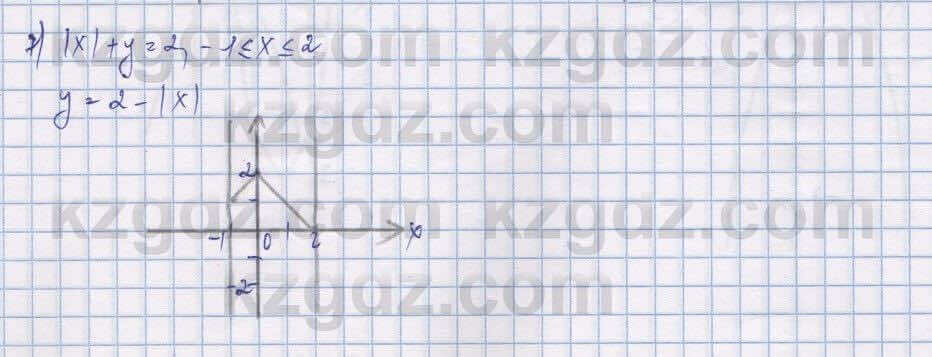 7) |x| + y = 2, -1 ≤ x ≤ 2
y = 2 - |x|
2
-1 0 1 2 x
-2
kzgdz.com kzgdz.com
kzgdz.com
kzgdz.com kzgdz.com
kzgdz.com